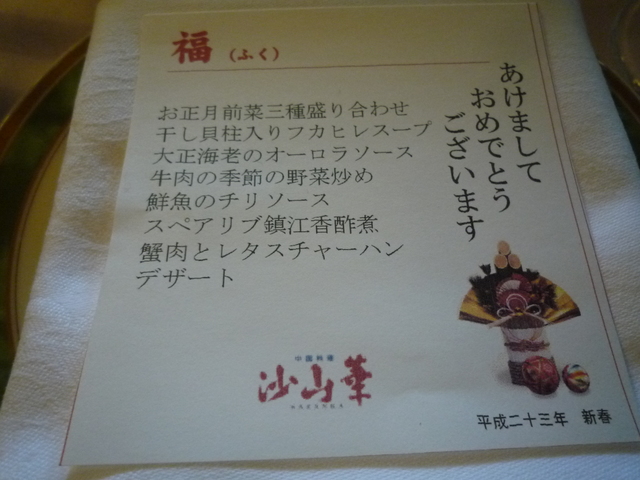 福 (ふく)
あけまして
おめでとう
ございます
お正月前菜三種盛り合わせ
干し貝柱入りフカヒレスープ
大正海老のオーロラソース
牛肉の季節の野菜炒め
鮮魚のチリソース
スペアリブ鎮江香酢煮
蟹肉とレタスチャーハン
デザート
中國料理
沙山華
平成二十三年 新春